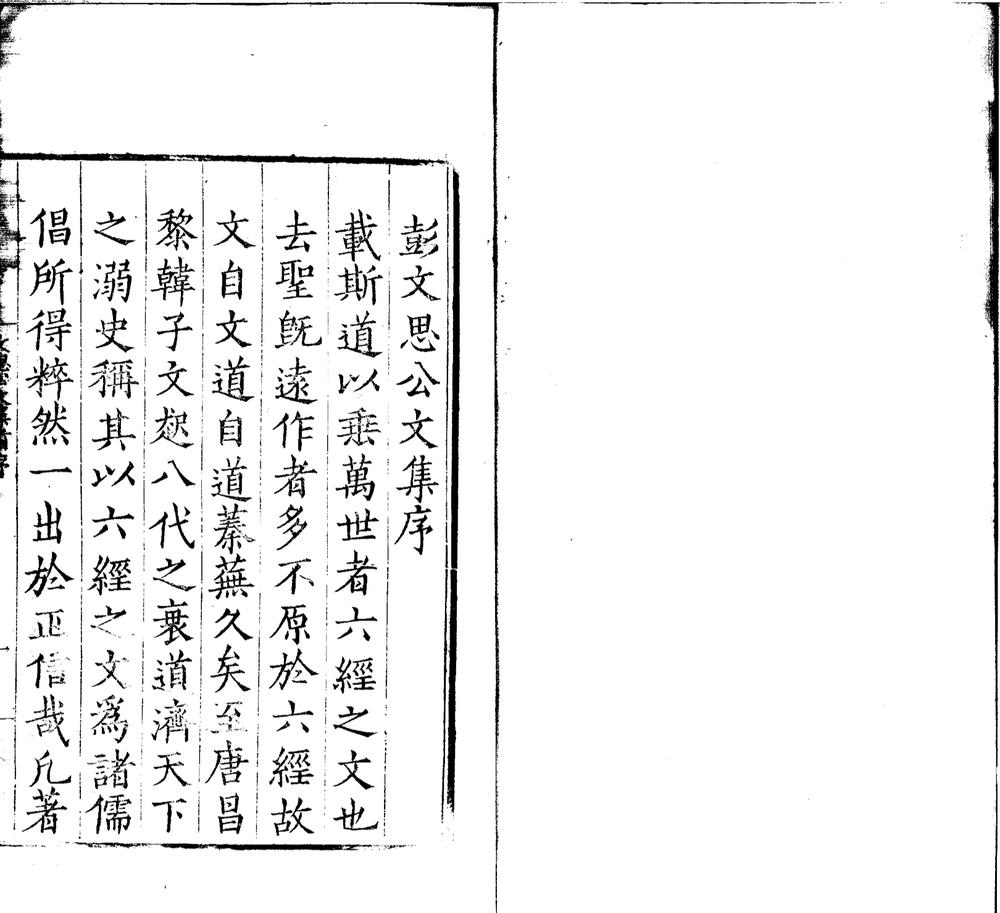 彭文思公文集序
載斯道以乗萬世者六經之文也
去聖旣遠作者多不原於六經故
文自文道自道蓁蕪久矣至唐昌
黎韓子文起八代之衰道濟天下
之溺史稱其以六經之文爲諸儒
倡所得粹然一出於正信哉凡著